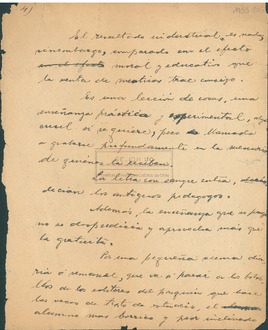 4)
El resultado industrial, es nada,
sin embargo, comparado en el efecto
moral y educativo que
la venta de medias trae consigo.
Es una lección de cosas, una
enseñanza práctica y experimental, algo
cruel si se quiere, pero llamada
a grabarse profundamente en la memoria
de quienes la reciben.
La letra con sangre entra,
decían los antiguos pedagogos.
Además, la enseñanza que se paga
no se desperdicia y aprovecha más que
la gratuita.
Por una pequeña suma dia-
ria ó semanal, que va a parar a los bolsi-
llos de los editores del pasquín que hace
las veces de texto de estudio, el
alumno más borrico y peor inclinado